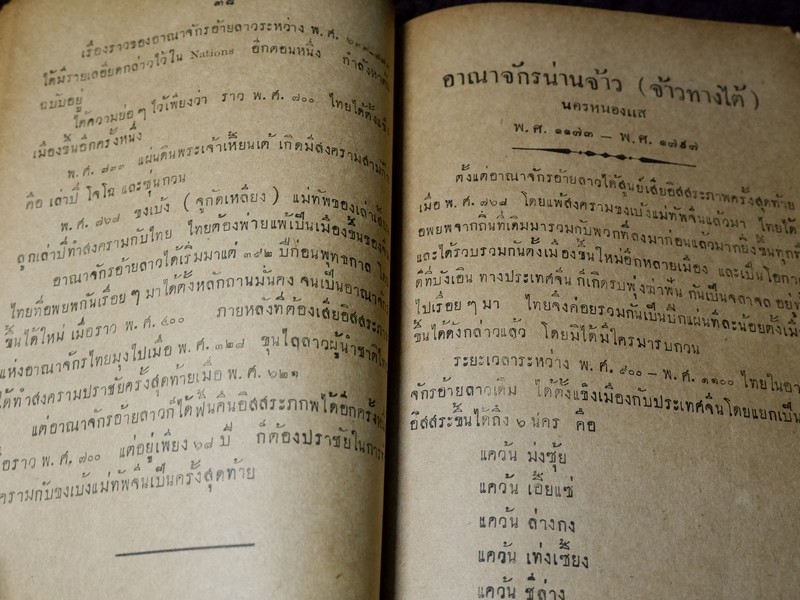 ๓๘
เรื่องราวของอาณาจักรอ้ายลาวระหว่าง พ. ศ.
ได้มีรายเลอียดกล่าวไว้ใน Nations อีกตอนหนึ่ง
ฉบับอยู่
ได้ความย่อ ๆ ไว้เพียงว่า ราว พ. ศ. ๗๐๐ ไทยได้ตั้ง
เมืองขึ้นอีกครั้งหนึ่ง
พ. ศ. แผ่นดินพระเจ้าเหี้ยนเต้ เกิดมีสงครามสาม
คือ เล่าปี่ โจโฉ และซุ่นกวน
พ. ศ. ๗๖๘ ขงเบ้ง ( จูกัดเหลียง ) แม่ทัพของเล่า
ลูกเล่าปี่ทำสงครามกับไทย ไทยต้องพ่ายแพ้เป็นเมืองขึ้นของ
อาณาจักรอ้ายลาวได้เริ่มมาแต่ ปีก่อนพุทธกาล
ไทยที่อพยพกันเรื่อย ๆ มาได้ตั้งหลักถานมั่นคง จนเป็นอาณา
ขึ้นได้ใหม่ เมื่อราว พ. ศ. ๔๐๐ ภายหลังที่ต้องเสียอิสสระภา
แห่งอาณาจักรไทยมุงไปเมื่อ พ. ศ. ๓๒๘ ขุนไลลาวผู้นำชาติไ
ได้ทำสงครามปราชัยครั้งสุดท้ายเมื่อ พ. ศ. ๖๒๑
แต่อาณาจักรอ้ายลาวก็ได้ฟื้นคืนอิสสระภกพได้อีกครั้ง
พ. ศ. ๗๐๐ แต่อยู่เพียง ๖๘ ปี ก็ต้องปราชัยในการ
ครามกับขงเบ้งแม่ทัพจีนเป็นครั้งสุดท้าย
อาณาจักรน่านจ้าว ( จ้าวทางไต้ )
นครหนองแส
พ. ศ. ๑๑๗๓ — พ. ศ. ๑๗๙๗
ตั้งแต่อาณาจักรอ้ายลาวได้สูนย์เสียอิสสระภาพครั้งสุดท้าย
เมื่อ พ. ศ. ๗๖๘ โดยแพ้สงครามขงเบ้งแม่ทัพจีนแล้วมา ไทยได้
อพยพจากถิ่นที่เดิมมารวมกับพวกที่ลงมาก่อนแล้วมากยิ่งขึ้นทุกที
และได้รวบรวมกันตั้งเมืองขึ้นใหม่อีกหลายเมือง และเป็นโอกา
ดีที่บังเอิน ทางประเทศจีน ก็เกิดรบพุ่งฆ่าฟัน กันเป็นจลาจล
ไปเรื่อย ๆ มา ไทยจึงค่อยรวมกันเป็นปึกแผ่นทีละน้อยตั้งเมือ
ขึ้นได้ดังกล่าวแล้ว โดยมิได้มีใครมารบกวน
ระยะเวลาระหว่าง พ. ศ. ๙๐๐ — พ. ศ. ๑๑๐๐ ไทยในอา
จักรอ้ายลาวเดิม ได้ตั้งแข็งเมืองกับประเทศจีนโดยแยกเป็น
อิสสระขึ้นได้ถึง ๖ นคร คือ
แคว้น ม่งซุ้ย
แคว้น เอี้ยแซ่
แคว้น ล่างกง
แคว้น เท่งเซี้ยง
แคว้น ซี่ล่าง